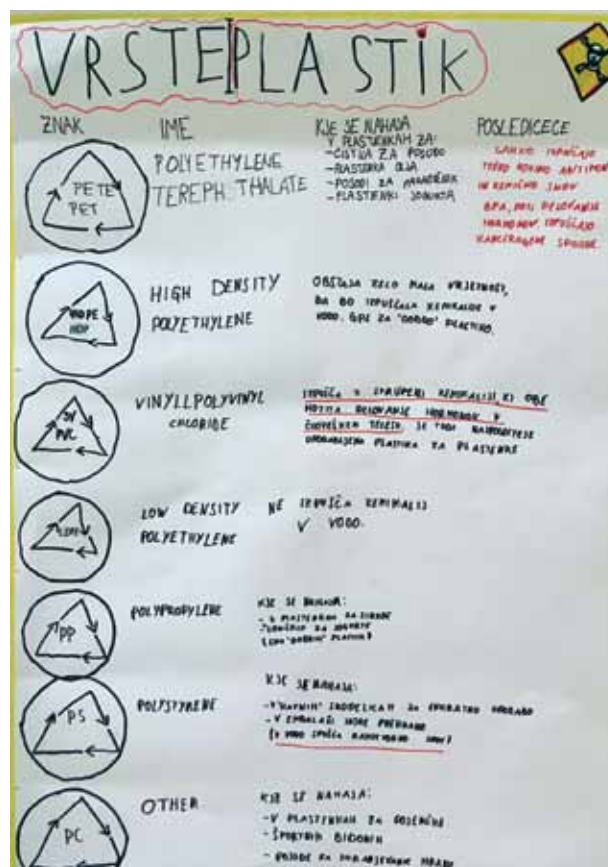 VRSTE PLASTIK
ZNAK IME KJE SE NAHAJA POSLEDICECE
PETE
PET
POLYETHYLENE
TEREPH THALATE
V PLASTENKAH ZA:
-ČISTILA ZA POSODO
-PLASTENKA OLJA
-POSODI ZA
-PLASTENKI JOGURTA
LAHKO IZPUŠČAJO
TEŽKO KOVINO ANTIMON
IN KEMIČNO SNOV
BPA,
HORMONOV. IZPUŠČAJO
KANCEROGENE
HDPE
HDP
HIGH DENSITY
POLYETHYLENE
OBSTAJA ZELO MALA VRJETNOST,
DA BO IZPUŠČALA KEMIKALIJE V
VODO. GRE ZA "DOBRO" PLASTIKO.
PVC
VINYLLPOLYVINYL
CHLORIDE
IZPUŠČA KEMIKALIJI, KI OBE
DELOVANJE HORMONOV V
ČLOVEŠKEM TELESU. JE TUDI
UPORABLJENA PLASTIKA ZA PLASTENKE
LDPE
LOW DENSITY
POLYETHYLENE
NE IZPUŠČA KEMIKALIJ
V VODO.
PP
POLYPROPYLENE
KJE SE NAHAJA:
- V PLASTENKAH ZA SIRUPE
ZA JOGURTE
"DOBRIH" PLASTIK)
PS
POLYSTYRENE
KJE SE NAHAJA:
SKODELICAH ZA ENKRATNO UPORABO
-V EMBALAŽI HITRE PREHRANE
(V VODO SPUŠČA SNOV)
PC
OTHER
KJE SE NAHAJA:
-V PLASTENKAH ZA DOJENČKE
-ŠPORTNIH BIDONIH
- POSODE ZA SHRANJEVANJE HRANE